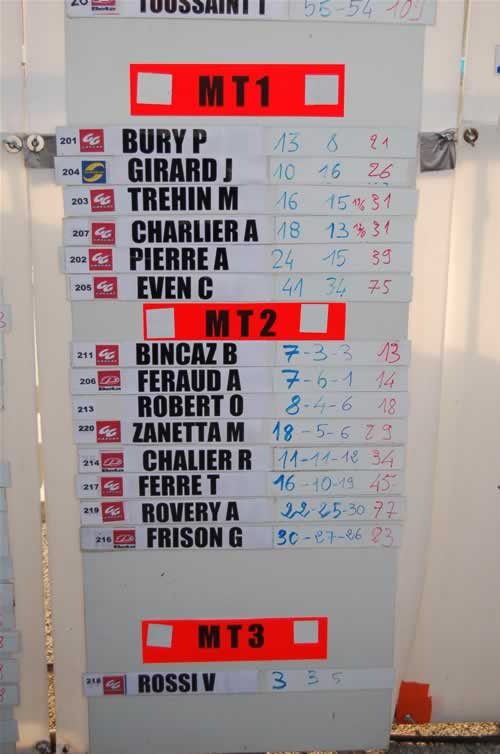 TOUSSAINT T 55-54 109
MT1
201 BURY P 13 8 21
204 GIRARD J 10 16 26
203 TREHIN M 16 15 31
207 CHARLIER A 18 13 31
202 PIERRE A 24 15 39
205 EVEN C 41 34 75
MT2
211 BINCAZ B 7-3-3 13
206 Beta FERAUD A 7-6-1 14
213 ROBERT O 8-4-6 18
220 ZANETTA M 18-5-6 29
214 Beta CHALIER R 11-11-12 34
217 FERRE T 16-10-19 45
219 ROVERY A 22-25-30 77
216 Beta FRISON G 30-27-26 83
MT3
218 ROSSI V 3 3 5